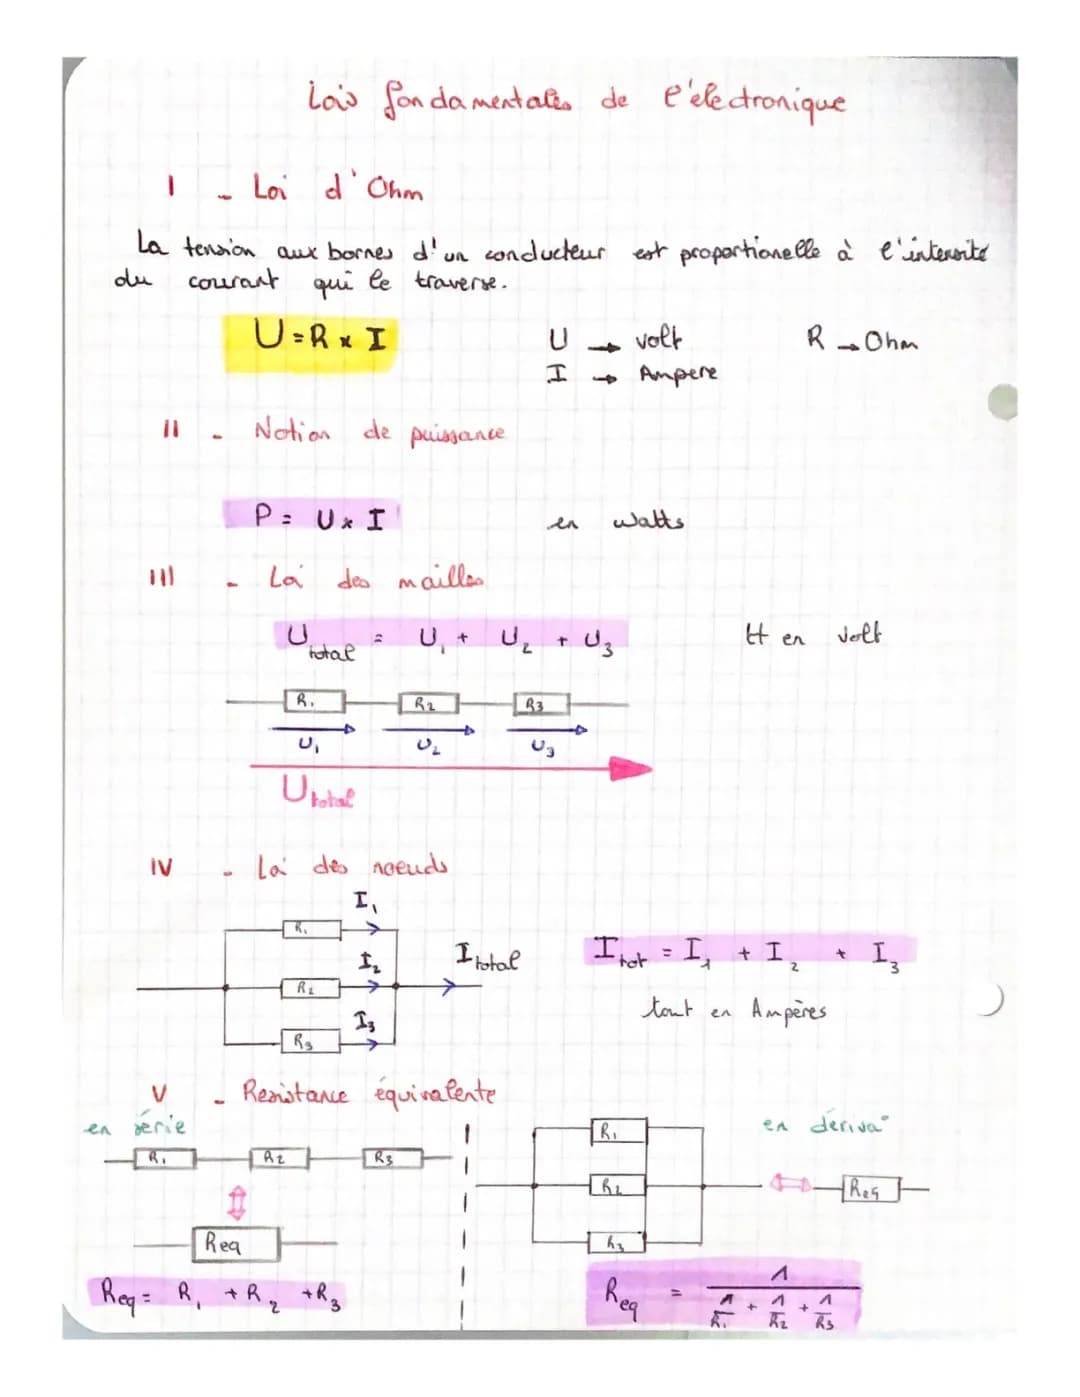 Lois fondamentales de l'électronique
I - Loi d'Ohm
La tension aux bornes d'un conducteur est proportionelle à l'intensité
du courant qui le traverse.
U = R x I U → volt R → Ohm
I → Ampere
II - Notion de puissance
P = U x I en watts
III - Loi des mailles
U total = U1 + U2 + U3 tt en volt
R1 R2 R3
U1 U2 U3
U total
IV - Loi des noeuds
I1
R1
I2 I total I tot = I1 + I2 + I3
R2
I3 tout en Ampères
R3
V - Resistance équivalente
en série
R1 R2 R3
Req
Req = R1 + R2 + R3
en dériva°
R1
R2 Req
R3
Req = 1 / (1/R1 + 1/R2 + 1/R3)